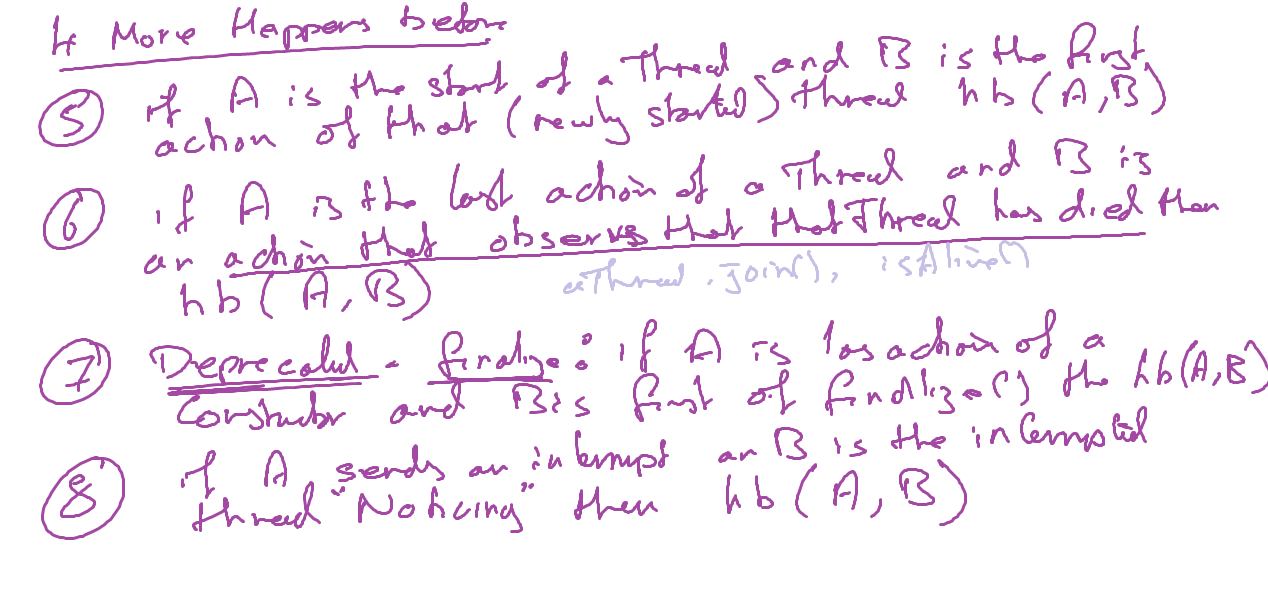 4 More Happens before
5 if A is the start of a Thread and B is the first
action of that (newly started) thread hb(A,B)
6 if A is the last action of a Thread and B is
an action that observes that that Thread has died then
hb(A,B)
aThread.join(), isAlive()
7 Deprecated - finalize: if A is las action of a
Constructor and B is first of finalize() the hb(A,B)
8 if A sends an interrupt an B is the interrupted
thread "Noticing" then hb(A,B)